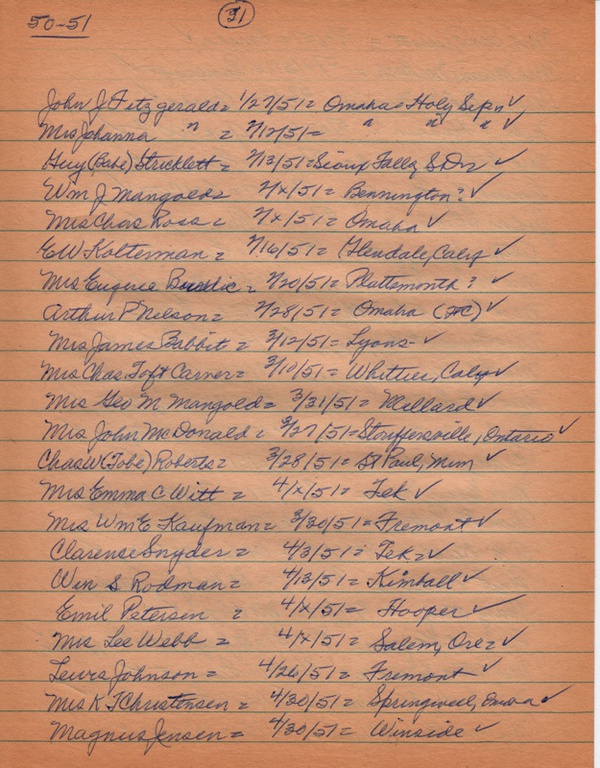 50-51
31
John J Fitzgerald = 1/27/51 = Omaha = Holy Sep ✓
Mrs Johanna " = 2/12/51 = " " " ✓
Guy (Babe) Stricklett = 2/13/51 = Sioux Falls S D ✓
Wm J Mangold = 2/x/51 = Bennington? ✓
Mrs Chas Ross = 2/x/51 = Omaha ✓
E W Kolterman = 2/16/51 = Glendale, Calif ✓
Mrs Eugene = 2/20/51 = Plattsmouth? ✓
Arthur P Nelson = 2/28/51 = Omaha ✓
Mrs James Babbit = 3/12/51 = Lyons ✓
Mrs Chas Toft Carner = 3/10/51 = Whittier, Calif ✓
Mrs Geo M Mangold = 3/31/51 = Millard ✓
Mrs John McDonald = /27/51 = Stouffersville, Ontario ✓
Chas W (Tobe) Roberts = 3/28/51 = St Paul, Minn ✓
Mrs Emma C Witt = 4/x/51 = Tek ✓
Mrs Wm E Kaufman = 3/30/51 = Fremont ✓
Clarence Snyder = 4/3/51 = Tek = ✓
Win S Rodman = 4/13/51 = Kimball ✓
Emil Petersen = 4/x/51 = Hooper ✓
Mrs Lee Webb = 4/x/51 = Salem, Ore = ✓
Lewis Johnson = 4/26/51 = Fremont ✓
Mrs K T Christensen = 4/30/51 = ✓
Magnus Jensen = 4/30/51 = Winside ✓